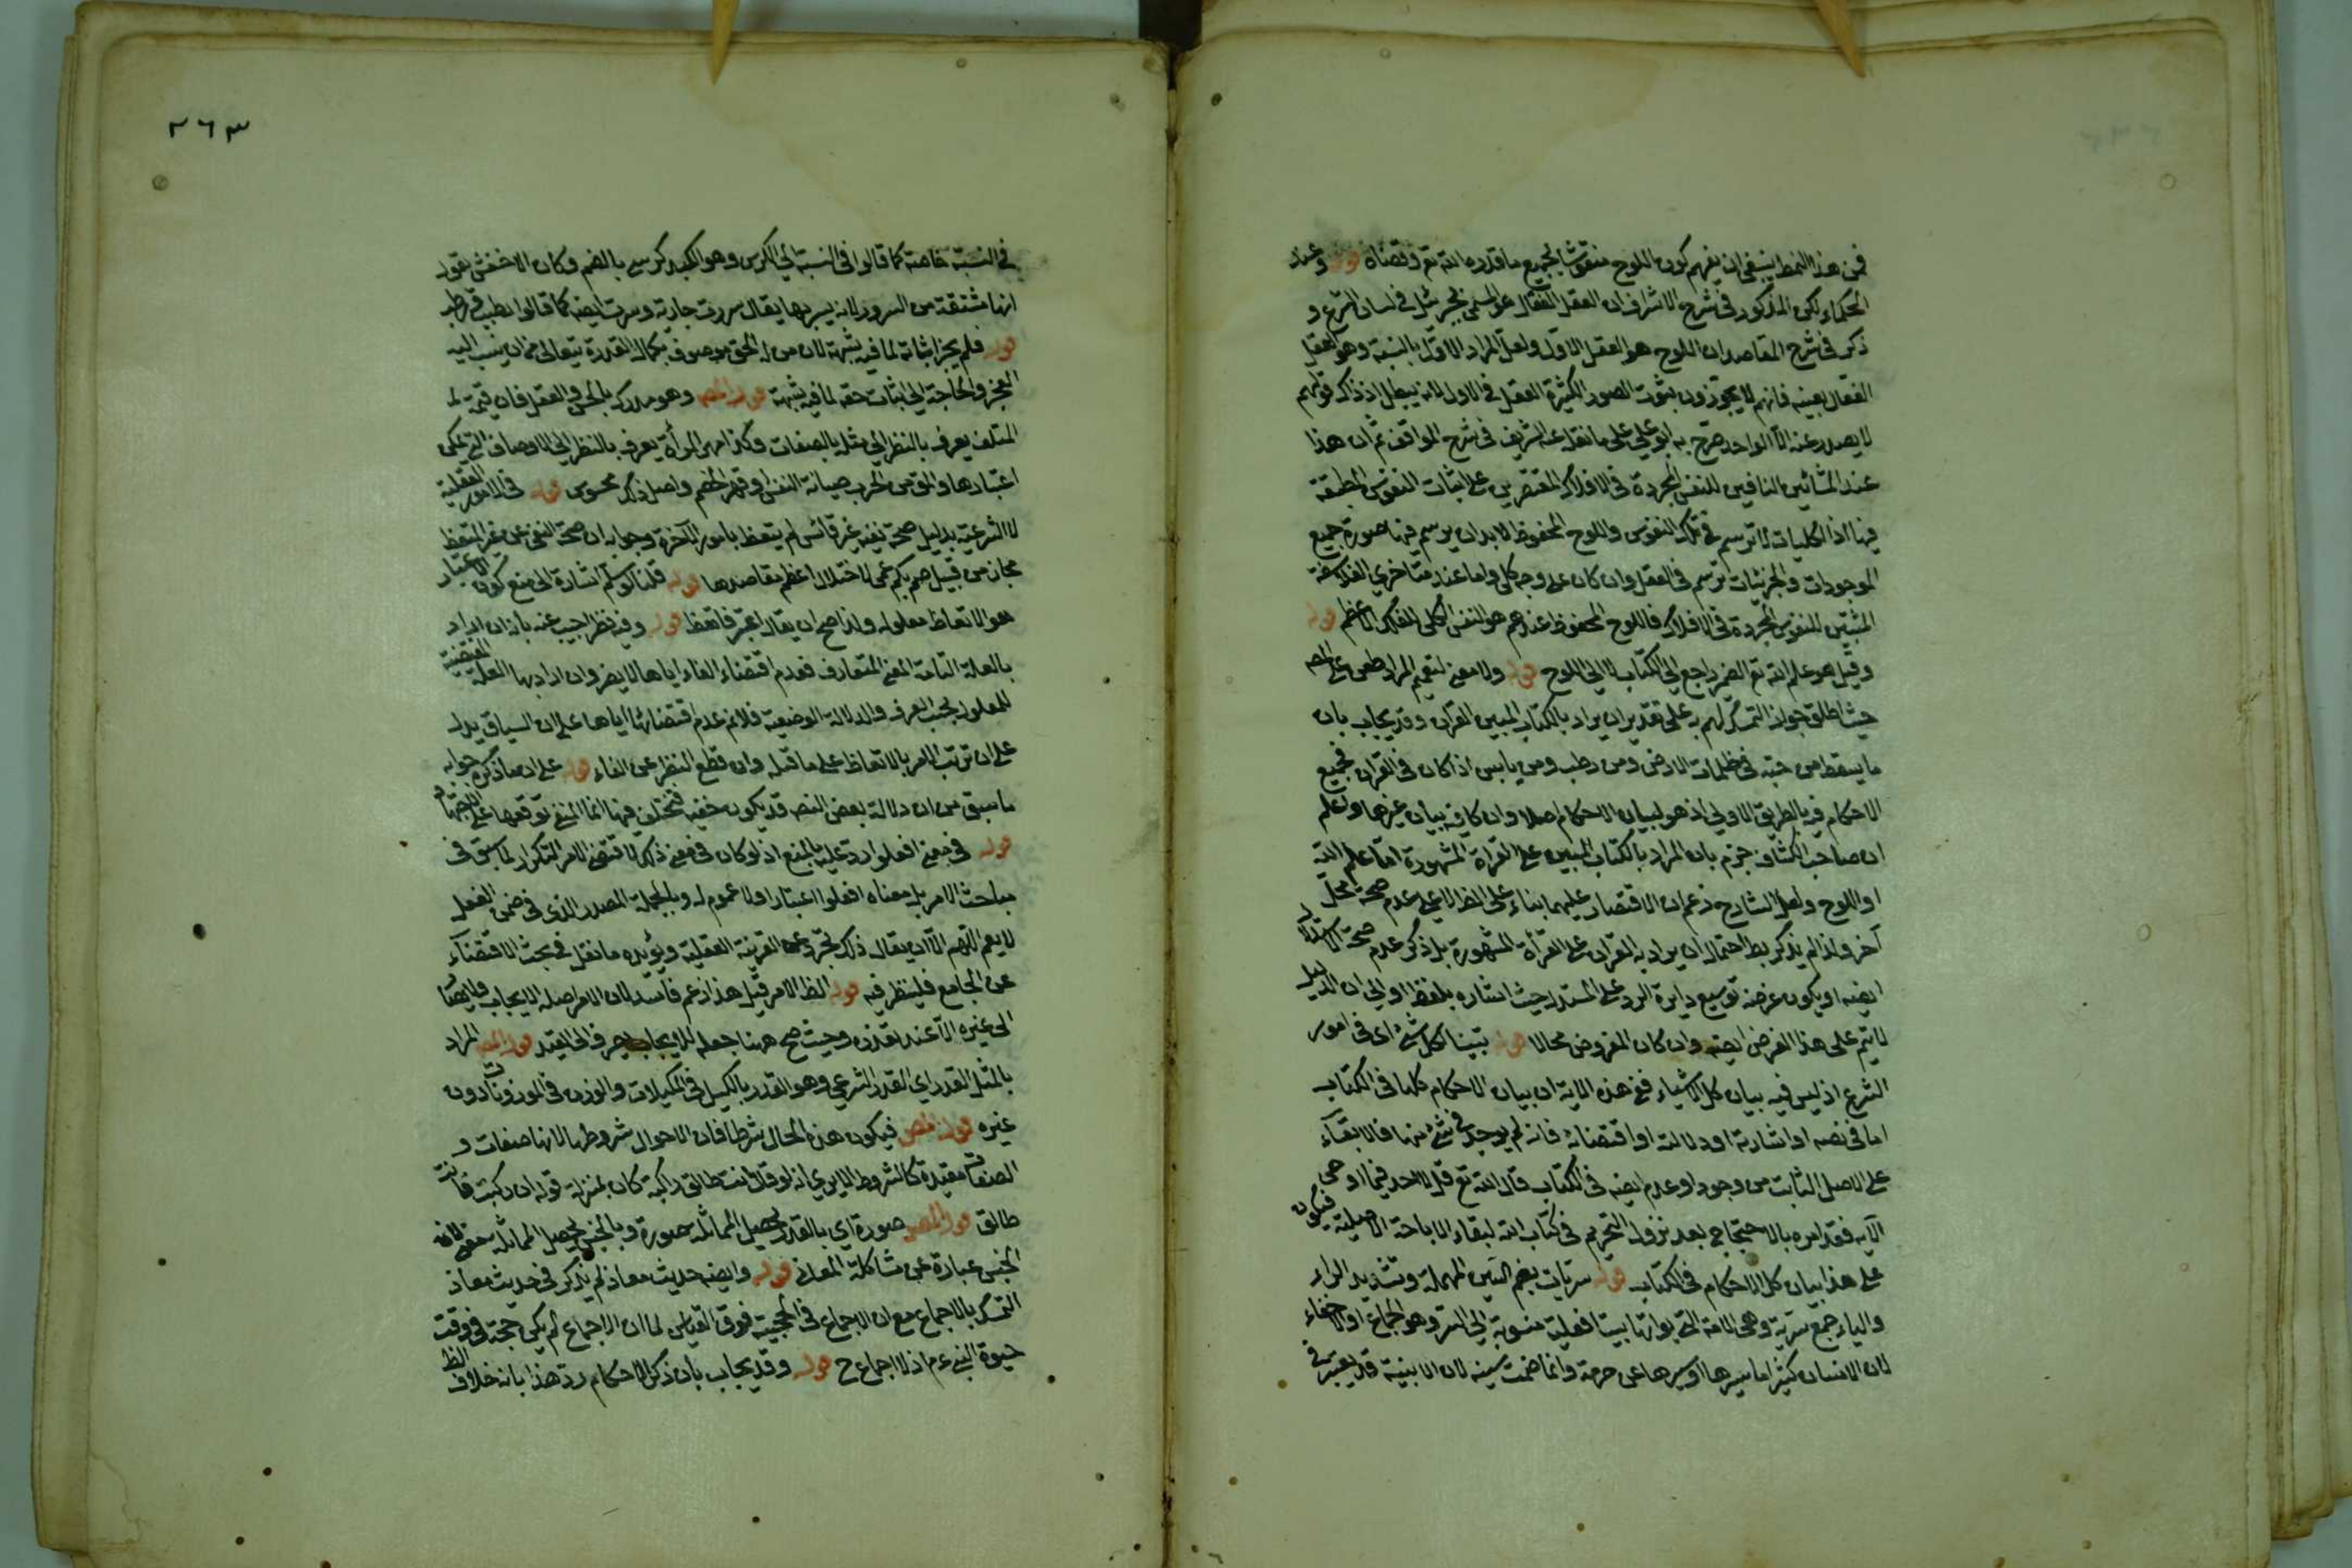 فمن هذا النمط ينبغي ان يفهم كون اللوح منقوشا بجميع ما قدره الله تع وقضاه قوله وعند
الحكماء لكن المذكور في شرح الاشراف ان العقل الفعال هو المسمى بجبرئيل في لسان الشرع و
ذكر في شرح المقاصد ان اللوح هو العقل الاول ولعل المراد الاول بالنسبة وهو العقل
الفعال بعينه فانهم لا يجوزون بثبوت الصور الكثيرة العقل في الاول لانه يبطل اذ ذاك قولهم
لا يصدر عنه الا الواحد صرح به ابو علي على ما نقله عنه الشريف في شرح المواقف ثم ان هذا
عند المشائين النافين للنفس المجردة في الافلاك المقتصرين على اثبات النفوس المنطبقة
فيها اذ الكليات لا ترتسم في تلك النفوس واللوح المحفوظ لا بد ان يرتسم فيها صورة جميع
الموجودات والجزئيات ترتسم في العقل وان كان على وجه كلي واما عند متأخري الفلاسفة
المثبتين للنفوس المجردة في الافلاك فاللوح المحفوظ عندهم هو النفس الكلي للفلك الاعظم قوله
وقيل هو علم الله تع الضمير راجع الى الكتاب لا الى اللوح قوله ولا معنى لتعميم المراد طعن على المص
حيث اطلق جواز التمسك لهم به على تقدير ان يراد بالكتاب المبين القرآن وقد يجاب بان
ما يسقط من حبة في ظلمات الارض ومن رطب ومن يابس اذا كان في القرآن فجميع
الاحكام فيه بالطريق الاولى اذ هو لبيان الاحكام اصلا وان كان فيه بيان غيرها واعلم
ان صاحب الكشاف جزم بان المراد بالكتاب المبين على القراة المشهورة اما علم الله
او اللوح ولعل الشارح زعم ان الاقتصار عليهما بناء على الظ لا على عدم صحة محمل
آخر ولذا لم يذكر بط احتمال ان يراد به القرآن على القرأة المشهورة بل ذكر عدم صحة الاستدلال
ايضه او يكون غرضه توسيع دايرة الرد على المستدل حيث اشار بلفظ او الى ان الدليل
لا يتم على هذا الفرض ايضه وان كان المفروض محالا قوله تبيينا لكل شئ اى في امور
الشرع اذ ليس فيه بيان كل الاشياء فمع هذه الاية ان بيان الاحكام كلها في الكتاب
اما في نصه او اشارته او دلالته او اقتضائه فان لم يوجد في شئ منها فالابقاء
على الاصل الثابت من وجود او عدم ايضه في الكتاب قال الله تع قل لا اجد فيما اوحى
الآية فقد امره بالاحتجاج بعد نزول التحريم في كتاب الله لبقاء الاباحة الاصلية فيكون
على هذا بيان كل الاحكام في الكتاب قوله سريات بضم السين المهملة وتشديد الراء
والياء جمع سرية وهى الامة التي بوأتها بيتا فعلية منسوبة الى السر وهو الجماع او الاخفاء
لان الانسان كثيرا ما يسرها ويسترها عن حرمة وانما ضمت سينه لان الابنية قد يغير في
٢٦٣
في النسبة خاصة كما قالوا في النسبة الى الكرس وهو الكبد كرسى بالضم وكان الاخفش يقول
انها مشتقة من السرور لانه يسر بها يقال سررت جارية وتسريت ايضه كما قالوا
قوله فلم يجز اثباته لما فيه شبهة لان من له الحق موصوف بكمال القدرة يتعالى من ان ينسب اليه
العجز والحاجة الى اثبات حقه لما فيه شبهة قوله المص وهو مدرك بالحس والعقل فان قيمة
المتلف يعرف بالنظر الى مثله بالصفات وكذا مهر المرأة يعرف بالنظر الى الاوصاف التي يمكن
اعتبارها والمق من الحرب صيانة النفس او قهر الخصم واصل ذلك محسوس قوله في الامور العقلية
لا الشرعية بدليل صحة نفيه غير قائس لم يتعظ بامور الآخرة وجوابه ان صحة النفي عن غير المتعظ
مجاز من قبيل صم بكم عمى لاختلال اعظم مقاصدها قوله قلنا لو سلم اشارة الى منع كون الاعتبار
هو الاتعاظ معلوله ولذا صح ان يقال اعتبر فاتعظ قوله وفيه نظر اجيب عنه بانه ان اراد
بالعلة التامة المعنى المتعارف فعدم اقتضاء الفاء اياها لا يضر وان اراد بها العلة المقتضية
للمعلول بحسب العرف والدلالة الوضعية فلانم عدم اقتضائها اياها على ان السياق يدل
على ان ترتب الامر بالاتعاظ على ما قبله وان قطع النظر عن الفاء قوله على ان ما ذكره جوابه
ما سبق من ان دلالة بعض النص قد يكون خفية فتختلف فيها انما المنفى توقفها على الاجتهاد
قوله في معنى افعلوا رد عليه بالمنع اذ لو كان في معنى ذلك لاقتضى الامر التكرار لما سبق في
مباحث الامر بل معناه افعلوا اعتبارا ولا عموم له وبالجملة المصدر الذي في ضمن الفعل
لا يعم اللهم الا ان يقال ذلك بتجرده عن القرينة العقلية ويؤيده ما نقل في بحث الاقتضاء
عن الجامع فلينظر فيه قوله الظ الامر قيل هذا زعم فاسد لان الامر اصله الايجاب ولا يصار
الى غيره الا عند تعذره وحيث صح ههنا جعله للايجاب يصرف الى القيد قوله المص المراد
بالمثل القدر اي القدر الشرعي وهو القدر بالكيل في المكيلات والوزن في الموزونات دون
غيره قوله المص فيكون هذه الحال شرطا فان الاحوال شروط لانها صفات و
الصفات مقيدة كالشروط الا يرى انه لو قال انت طالق راكبة كان بمنزلة قوله ان ركبت فانت
طالق قوله المص صورة اي بالقدر ليحصل المماثلة صورة وبالجنس ليحصل المماثلة معنى فان
الجنس عبارة عن مشاكلة المعاني قوله وايضه حديث معاذ لم يذكر في حديث معاذ
التمسك بالاجماع مع ان الاجماع في الحجية فوق القياس لما ان الاجماع لم يكن حجة في وقت
حيوة النبي ءم اذ لا اجماع ح قوله وقد يجاب بان ذكر الاحكام رد هذا بانه خلاف الظ